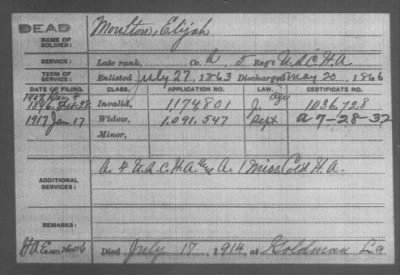 DEAD
Moulton, Elijah
NAME OF SOLDIER:
SERVICE: Late rank, Co. A 5 Reg't U.S.C.H.A.
TERM OF SERVICE: Enlisted July 27, 1863 Discharged May 20, 1866
DATE OF FILING. CLASS. APPLICATION NO. LAW. CERTIFICATE NO.
1896 Feb 28 Invalid, 1174801 J. Age 1036728
1917 Jan 17 Widow, 1.091.547 Sept A 7-28-32
Minor,
ADDITIONAL SERVICES: A. 4 U.S.C.H.A. A. 1 Miss Cold H.A.
REMARKS:
Died July 17, 1914, at Goldman La